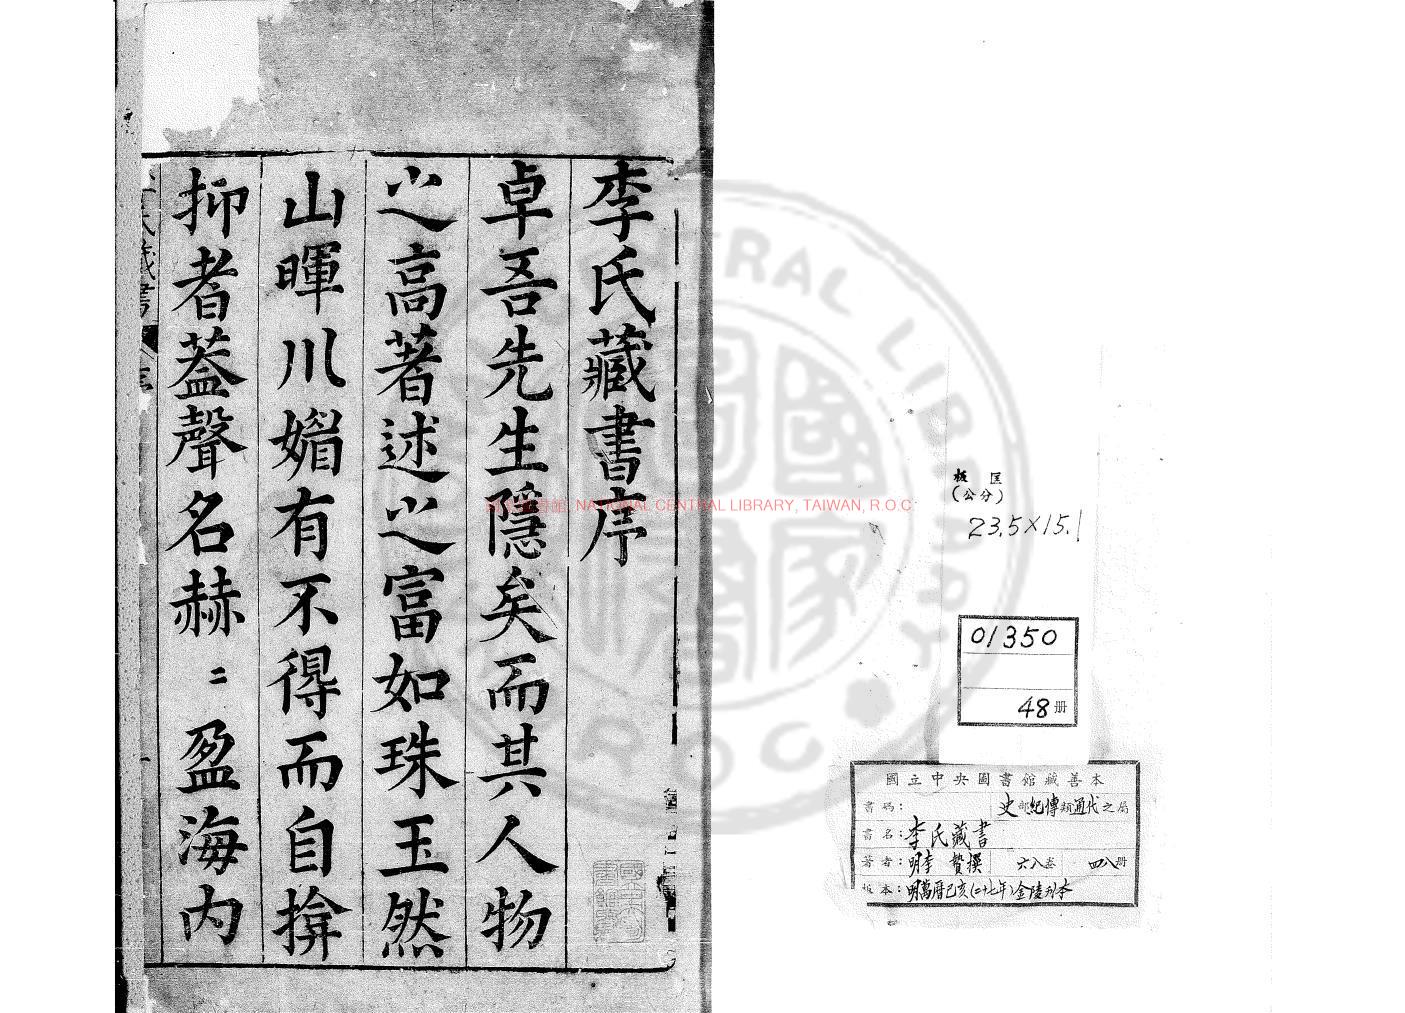 李氏藏書序
卓吾先生隱矣而其人物
之高著述之富如珠玉然
山暉川媚有不得而自揜
抑者蓋聲名赫〻盈海内
NATIONAL CENTRAL LIBRARY, TAIWAN, R.O.C
板匡
(公分)
23.5×15.1
01350
48册
國立中央圖書館藏善本
書碼： 史部紀傳類通代之屬
書名：李氏藏書
著者：明李贄撰 六八卷 四八册
版本：明萬曆己亥(二十七年)金陵刊本